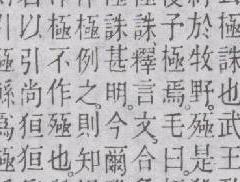 極誅也武王
於牧野。殛是
子極焉。毛曰。
誅釋言文。合
誅甚明。今爾
極例之。則知
極不作殛也。
以引尚狟狟
引極鯀爲殛